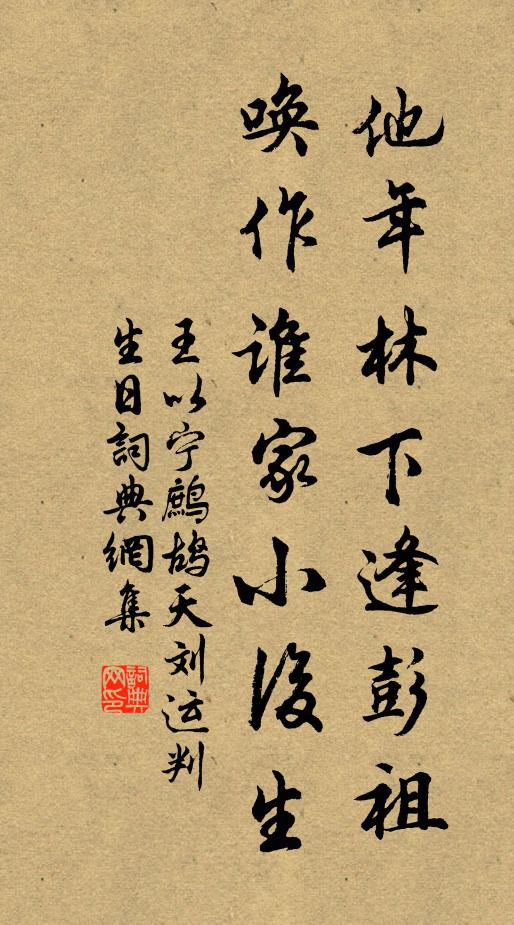 他年林下逢彭祖
唤作谁家小後生
王以宁鹧鸪天刘运判
生日詞典網集
詞典网印